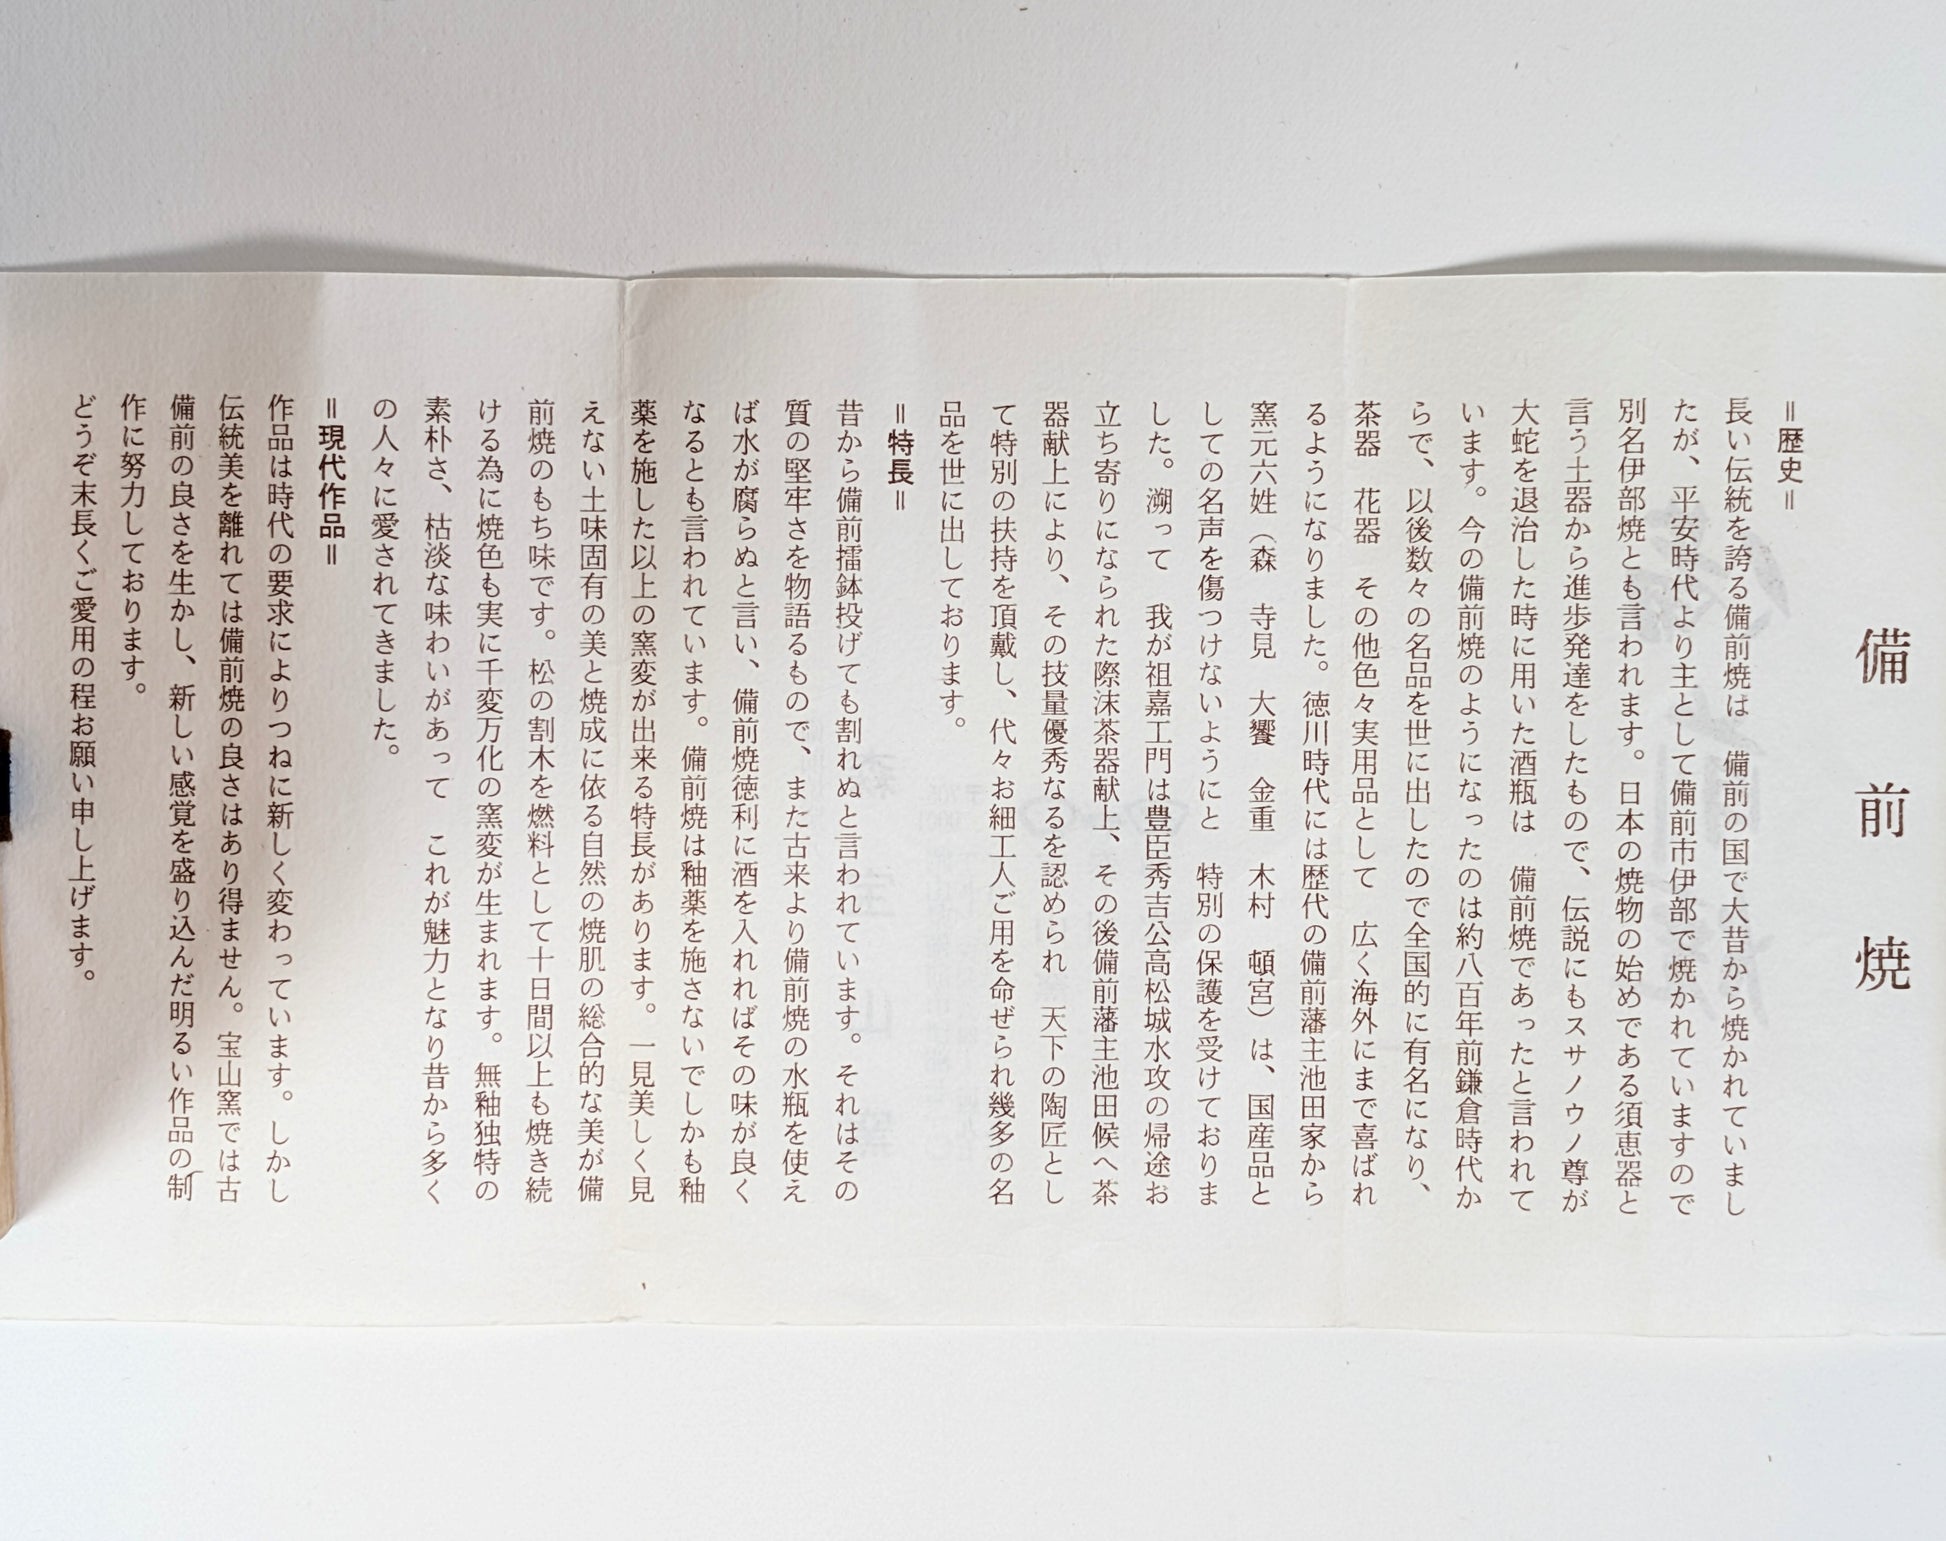 備前焼
＝歴史＝
長い伝統を誇る備前焼は　備前の国で大昔から焼かれていまし
たが、平安時代より主として備前市伊部で焼かれていますので
別名伊部焼とも言われます。日本の焼物の始めである須恵器と
言う土器から進歩発達をしたもので、伝説にもスサノウノ尊が
大蛇を退治した時に用いた酒瓶は　備前焼であったと言われて
います。今の備前焼のようになったのは約八百年前鎌倉時代か
らで、以後数々の名品を世に出したので全国的に有名になり、
茶器　花器　その他色々実用品として　広く海外にまで喜ばれ
るようになりました。徳川時代には歴代の備前藩主池田家から
窯元六姓（森　寺見　大饗　金重　木村　頓宮）は、国産品と
しての名声を傷つけないようにと　特別の保護を受けておりま
した。溯って　我が祖嘉工門は豊臣秀吉公高松城水攻の帰途お
立ち寄りになられた際沫茶器献上、その後備前藩主池田候へ茶
器献上により、その技量優秀なるを認められ　天下の陶匠とし
て特別の扶持を頂戴し、代々お細工人ご用を命ぜられ幾多の名
品を世に出しております。
＝特長＝
昔から備前擂鉢投げても割れぬと言われています。それはその
質の堅牢さを物語るもので、また古来より備前焼の水瓶を使え
ば水が腐らぬと言い、備前焼徳利に酒を入れればその味が良く
なるとも言われています。備前焼は釉薬を施さないでしかも釉
薬を施した以上の窯変が出来る特長があります。一見美しく見
えない土味固有の美と焼成に依る自然の焼肌の総合的な美が備
前焼のもち味です。松の割木を燃料として十日間以上も焼き続
ける為に焼色も実に千変万化の窯変が生まれます。無釉独特の
素朴さ、枯淡な味わいがあって　これが魅力となり昔から多く
の人々に愛されてきました。
＝現代作品＝
作品は時代の要求によりつねに新しく変わっています。しかし
伝統美を離れては備前焼の良さはあり得ません。宝山窯では古
備前の良さを生かし、新しい感覚を盛り込んだ明るい作品の制
作に努力しております。
どうぞ末長くご愛用の程お願い申し上げます。